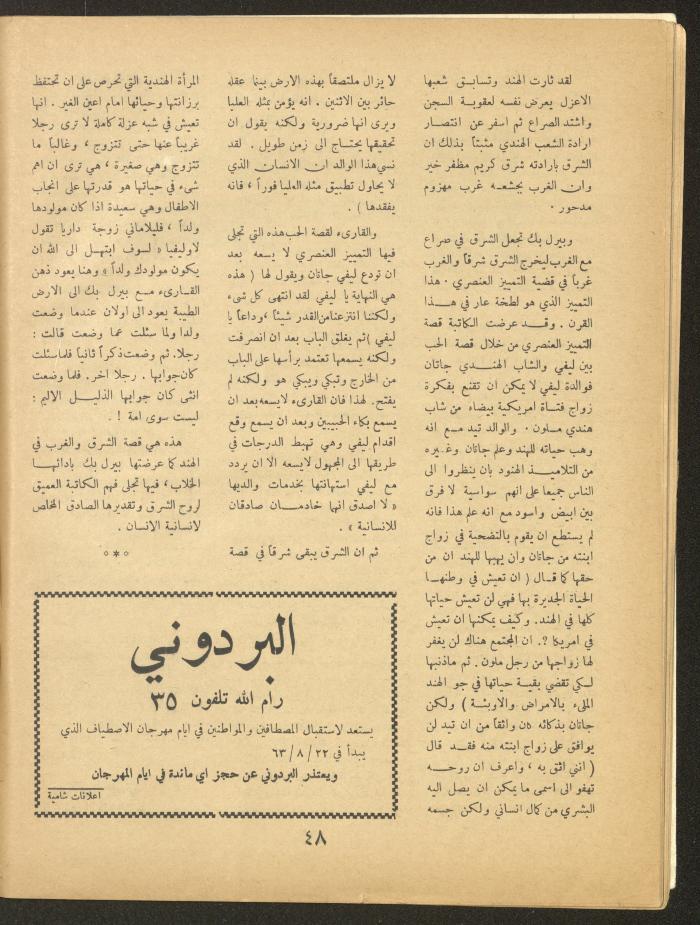 لقد ثارت الهند وتسابق شعبها
الاعزل يعرض نفسه لعقوبة السجن
واشتد الصراع ثم اسفر عن انتصار
ارادة الشعب الهندي مثبتاً بذلك ان
الشرق بارادته شرق كريم مظفر خير
وان الغرب بجشعه غرب مهزوم
مدحور .
وبيرل بك تجعل الشرق في صراع
مع الغرب ليخرج الشرق شرقاً والغرب
غرباً في قضية التمييز العنصري . هذا
التمييز الذي هو لطخة عار في هذا
القرن . وقد عرضت الكاتبة قصة
التمييز العنصري من خلال قصة الحب
بين ليفي والشاب الهندي جاتان
فوالدة ليفي لا يمكن ان تقنع بفكرة
زواج فتاة امريكية بيضاء من شاب
هندي ملون . والوالد تيد مع انه
وهب حياته للهند وعلم جاتان وغيره
من التلاميذ الهنود بان ينظروا الى
الناس جميعا على انهم سواسية لا فرق
بين ابيض واسود مع انه علم هذا فانه
لم يستطع ان يقوم بالتضحية في زواج
ابنته من جاتان وان يهبها للهند ان من
حقها كما قال ( ان تعيش في وطنها
الحياة الجديرة بها فهي لن تعيش حياتها
كلها في الهند. وكيف يمكنها ان تعيش
في امريكا ?. ان المجتمع هناك لن يغفر
لها زواجها من رجل ملون . ثم ماذنبها
لكي تقضي بقية حياتها في جو الهند
المليء بالامراض والاوبئة ) ولكن
جاتان بذكائه كان واثقاً من ان تيد لن
يوافق على زواج ابنته منه فقد قال
( انني اثق به ، واعرف ان روحه
تهفو الى اسمى ما يمكن ان يصل اليه
البشري من كمال انساني ولكن جسمه
لا يزال ملتصقاً بهذه الارض بينما عقله
حائر بين الاثنين . انه يؤمن بمثله العليا
ويرى انها ضرورية ولكنه يقول ان
تحقيقها يحتاج الى زمن طويل . لقد
نسي هذا الوالد ان الانسان الذي
لا يحاول تطبيق مثله العليا فوراً ، فانه
يفقدها ) .
والقارىء لقصة الحب هذه التي تجلى
فيها التمييز العنصري لا يسعه بعد
ان تودع ليفي جاتان ويقول لها ( هذه
هي النهاية يا ليفي لقد انتهى كل شيء
ولكننا انتزعنا من القدر شيئاً ، وداعاً يا
ليفي ) ثم يغلق الباب بعد ان انصرفت
ولكنه يسمعها تعتمد برأسها على الباب
من الخارج وتبكي ويبكي هو ولكنه لم
يفتح. لهذا فان القارىء لا يسعه بعد ان
يسمع بكاء الحبيبين وبعد ان يسمع وقع
اقدام ليفي وهي تهبط الدرجات في
طريقها الى المجهول لا يسعه الا ان يردد
مع ليفي استهانتها بخدمات والديها
« لا اصدق انها خادمان صادقان
للانسانية » .
ثم ان الشرق يبقى شرقاً في قصة
المرأة الهندية التي تحرص على ان تحتفظ
برزانتها وحيائها امام اعين الغير . انها
تعيش في شبه عزلة كاملة لا ترى رجلا
غريباً عنها حتى تتزوج ، وغالباً ما
تتزوج وهي صغيرة ، هي ترى ان اهم
شىء في حياتها هو قدرتها على انجاب
الاطفال وهي سعيدة اذا كان مولودها
ولداً ، فليلاماني زوجة داريا تقول
لاوليفيا « لسوف ابتهل الى الله ان
يكون مولودك ولداً » وهنا يعود ذهن
القارىء مع بيرل بك الى الارض
الطيبة يعود الى اولان عندما وضعت
ولدا ولما سئلت عما وضعت قالت :
رجلا. ثم وضعت ذكراً ثانياً فلما سئلت
كان جوابها . رجلا اخر. فلما وضعت
انثى كان جوابها الذليل الاليم :
ليست سوى امة ! .
هذه هي قصة الشرق والغرب في
الهند كما عرضتها بيرل بك بادائها
الخلاب، فيها تجلى فهم الكاتبة العميق
لروح الشرق وتقديرها الصادق المخلص
لانسانية الانسان .
° * °
البردوني
رام الله تلفون ٣٥
يستعد لاستقبال المصطافين والمواطنين في ايام مهرجان الاصطياف الذي
يبدأ في ٢٢ / ٨ / ٦٣
ويعتذر البردوني عن حجز اي مائدة في ايام المهرجان
اعلانات شامية
٤٨